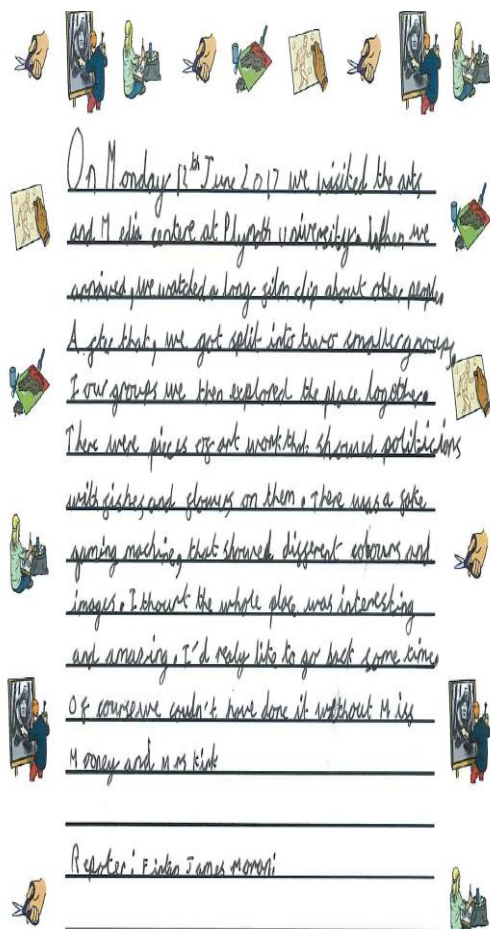 On Monday 12th June 2017 we visited the arts
and Media centre at Plymoth university. When we
arrived, we watched a long film clip about other people.
After that, we got split into two smaller groups.
I our groups we then explored the place together.
There were pieces of art work that showed politicians
with fishes and flowers on them. There was a fake
gaming machine, that showed different colours and
images. I thourt the whole place was interesting
and amazing. I'd realy like to go back some time.
Of course we couldn't have done it without Miss
Mooney and Mrs Kirk
Reporter: James Moroni